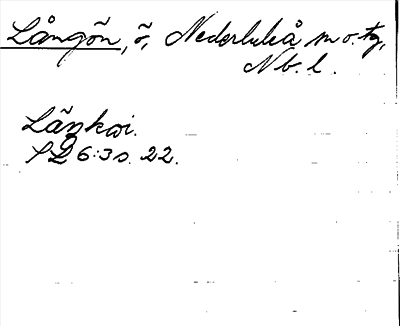 Långön, ö, Nederluleå sn o. tg,
Nb. l.
Länkoi.
SL 6:3 s. 22.